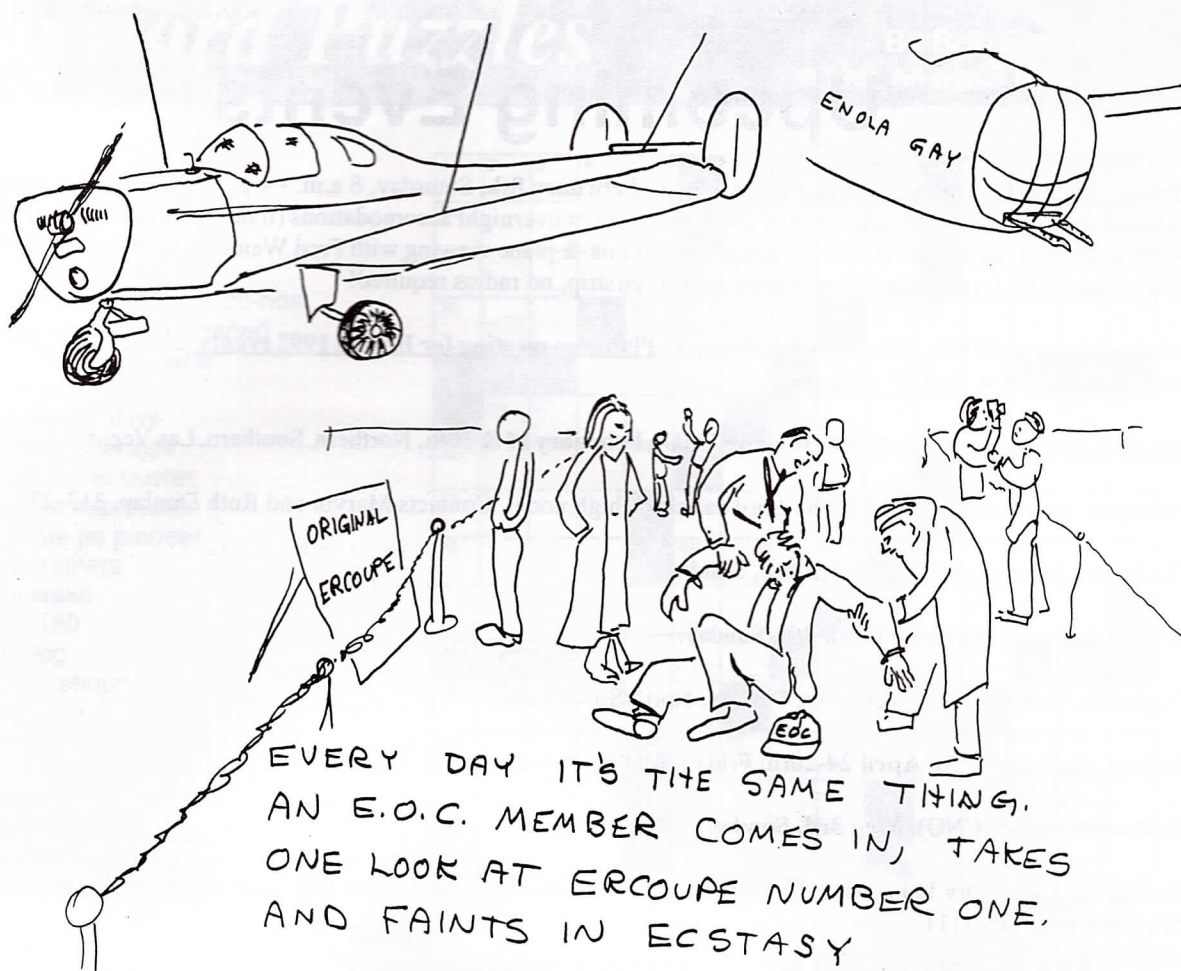 ENOLA
GAY
ORIGINAL
ERCOUPE
EOC
EVERY DAY IT'S THE SAME THING.
AN E.O.C. MEMBER COMES IN, TAKES
ONE LOOK AT ERCOUPE NUMBER ONE.
AND FAINTS IN ECSTASY